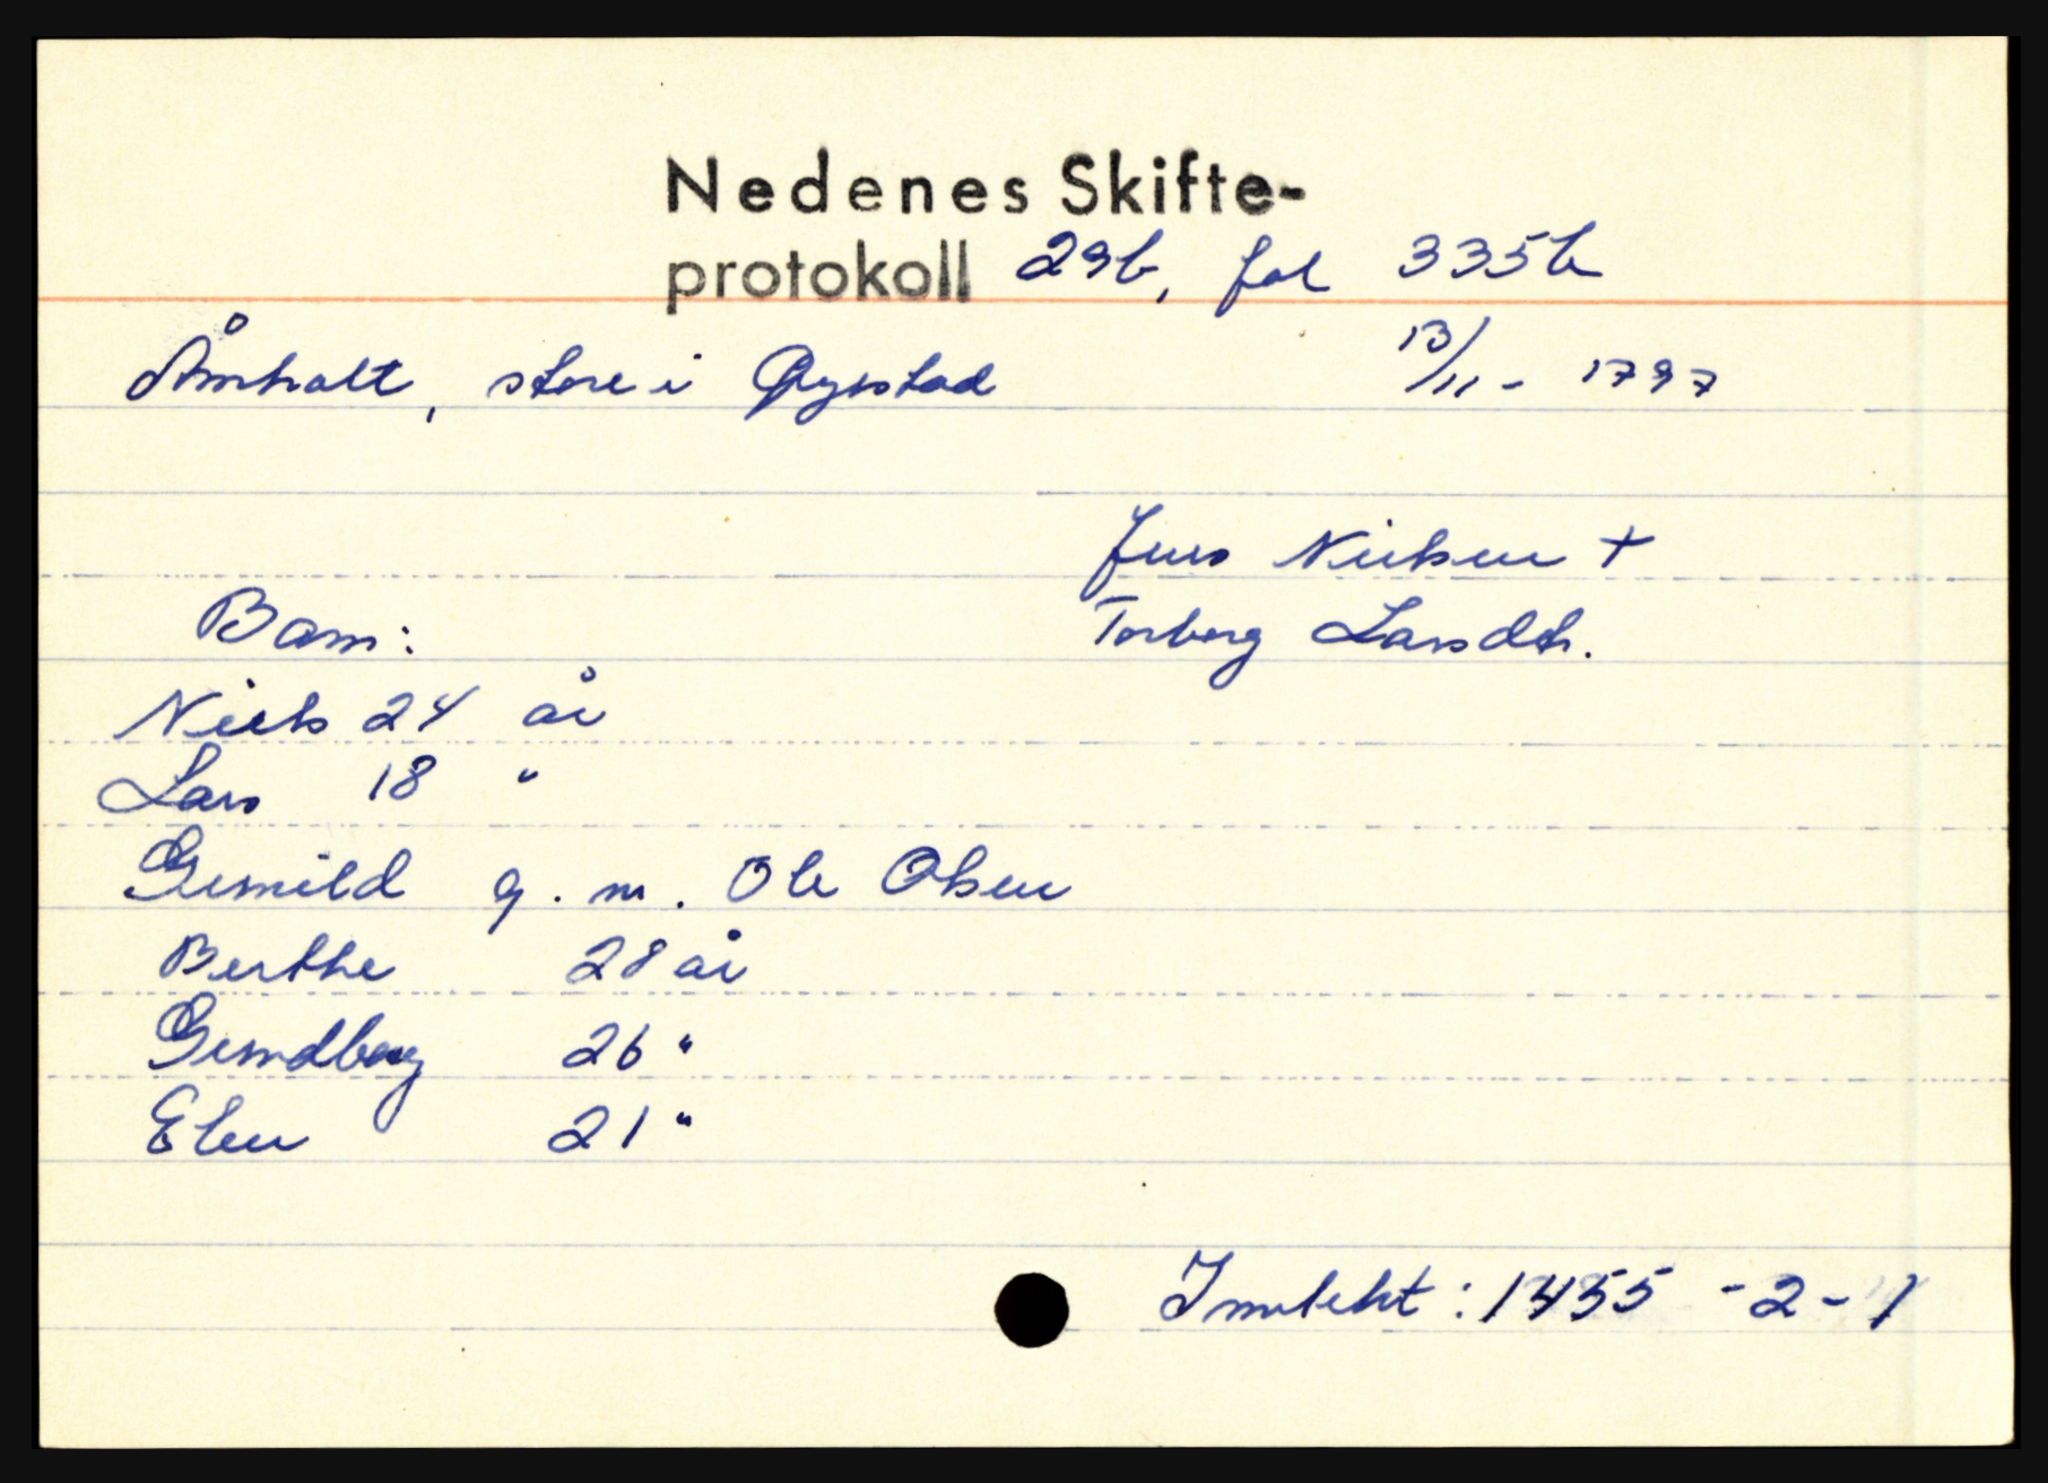 Nedenes Skifte-
protokoll 29b, fol 335b
Åmholt, store i Øyestad 13/11- 1797
Jens Nielsen +
Barn: Torborg Larsdtr.
Niels 24 år
Lars 18 "
Gunild g. m. Ole Olsen
Berthe 28 år
Gundborg 26 "
Elen 21 "
Inntekt: 1455 - 2 - 1